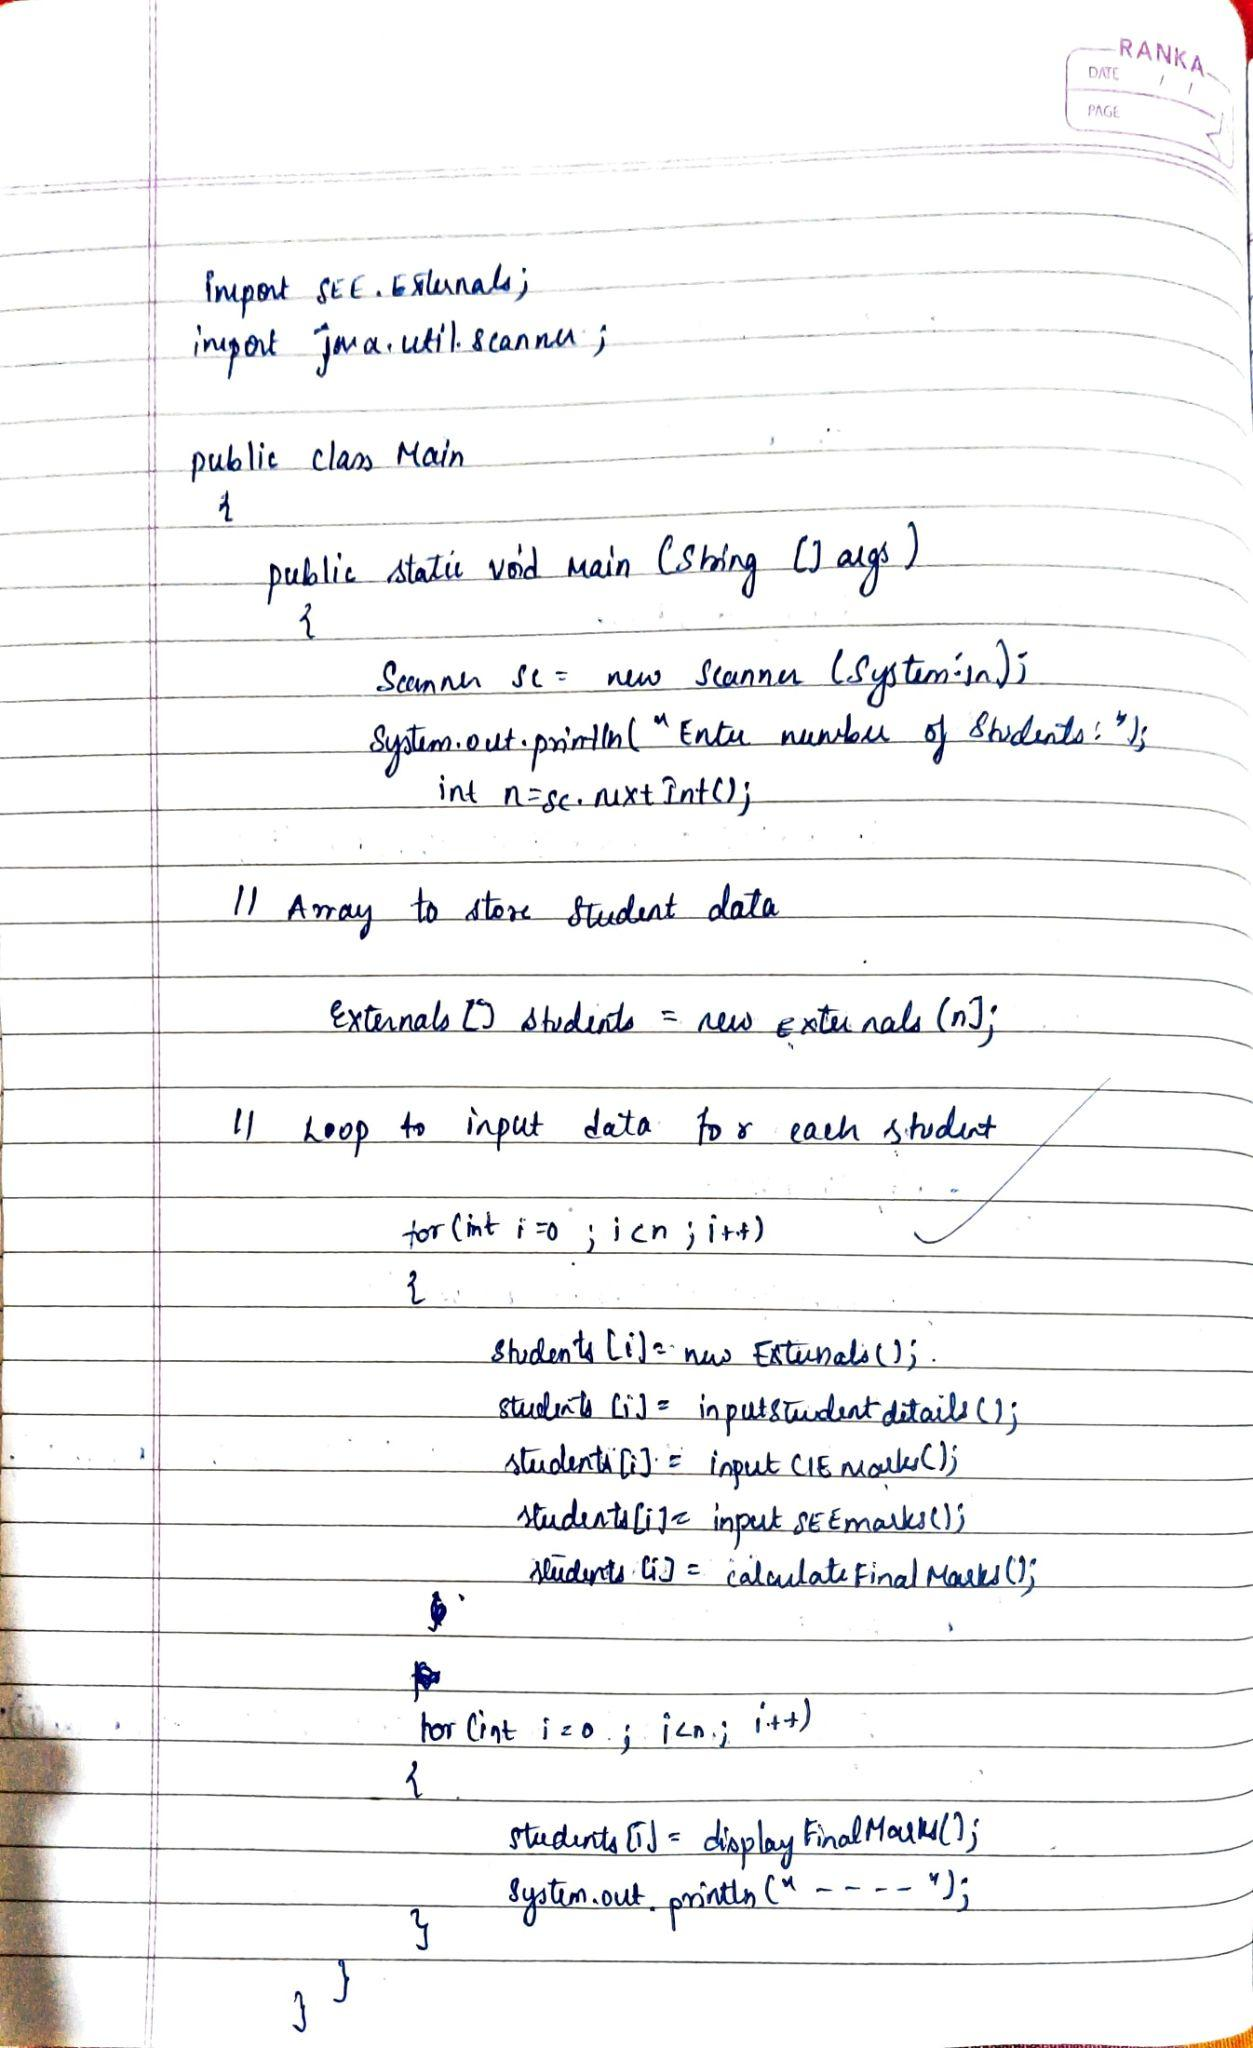 RANKA
DATE / /
PAGE
import SEE.Externals;
import java.util.scanner;
public class Main
{
public static void main (String [] args)
{
Scanner sc = new Scanner (System.in);
System.out.println("Enter number of Students:");
int n=sc.nextInt();
// Array to store student data
Externals [] students = new externals (n];
// Loop to input data for each student
for (int i=0 ; i<n ; i++)
{
students [i] = new Externals();
students [i] = inputStudentdetails();
students [i] = input CIE Marks();
students [i] = input SEEmarks();
students [i] = calculateFinal Marks();
for (int i=0 ; i<n ; i++)
{
students [i] = display FinalMarks();
System.out.println ("----");
}
}
}